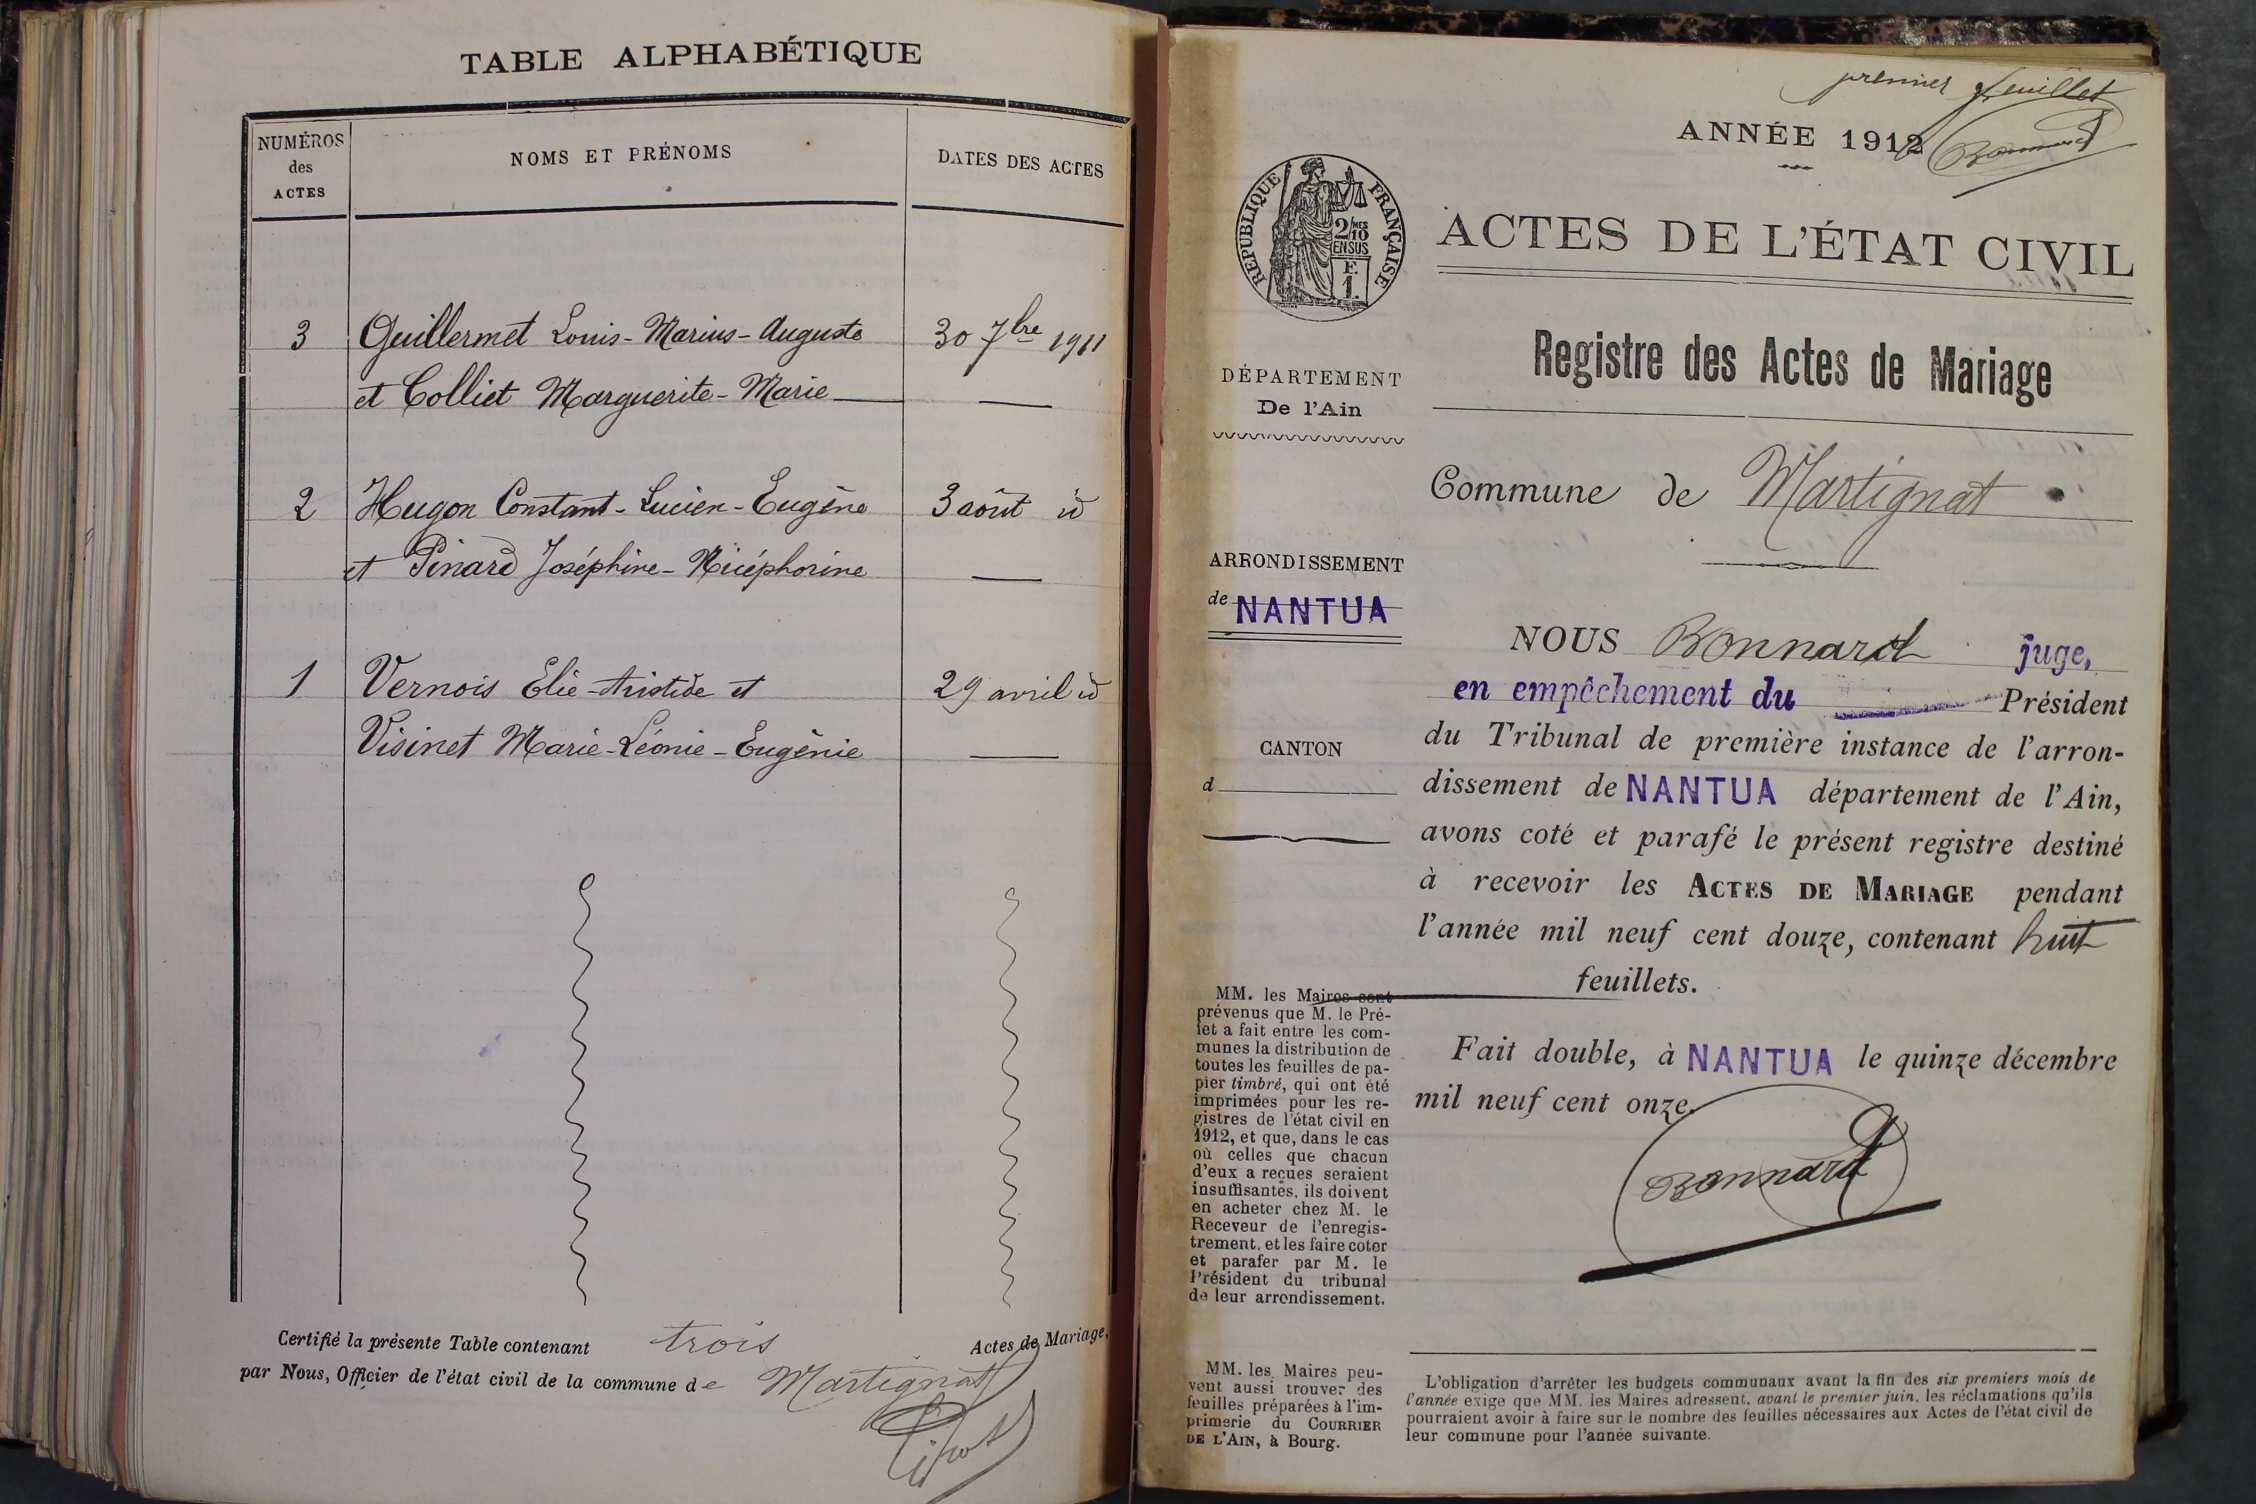 TABLE ALPHABÉTIQUE
NUMÉROS
des
ACTES
NOMS ET PRÉNOMS
DATES DES ACTES
3 Guillermet Louis-Marius-Auguste 30 7bre 1911
et Colliet Marguerite-Marie
2 Hugon Constant-Lucien-Eugène 3 août id
et Pinard Joséphine-Nicéphorine
1 Vernois Elie-Aristide et 29 avril id
Visinet Marie-Léonie-Eugénie
Certifié la présente Table contenant trois Actes de Mariage,
par Nous, Officier de l'état civil de la commune de Martignat
premier feuillet
Bonnard
ANNÉE 1912
RÉPUBLIQUE FRANÇAISE
2/10 MES
EN SUS
F.
1.
ACTES DE L'ÉTAT CIVIL
Registre des Actes de Mariage
DÉPARTEMENT
De l'Ain
Commune de Martignat
ARRONDISSEMENT
de NANTUA
CANTON
d
NOUS Bonnard juge,
en empêchement du Président
du Tribunal de première instance de l'arron-
dissement de NANTUA département de l'Ain,
avons coté et parafé le présent registre destiné
à recevoir les ACTES DE MARIAGE pendant
l'année mil neuf cent douze, contenant huit
feuillets.
Fait double, à NANTUA le quinze décembre
mil neuf cent onze.
Bonnard
MM. les Maires sont
prévenus que M. le Pré-
fet a fait entre les com-
munes la distribution de
toutes les feuilles de pa-
pier timbré, qui ont été
imprimées pour les re-
gistres de l'état civil en
1912, et que, dans le cas
où celles que chacun
d'eux a reçues seraient
insuffisantes, ils doivent
en acheter chez M. le
Receveur de l'enregis-
trement, et les faire coter
et parafer par M. le
Président du tribunal
de leur arrondissement.
MM. les Maires peu-
vent aussi trouver des
feuilles préparées à l'im-
primerie du COURRIER
DE L'AIN, à Bourg.
L'obligation d'arrêter les budgets communaux avant la fin des six premiers mois de
l'année exige que MM. les Maires adressent, avant le premier juin, les réclamations qu'ils
pourraient avoir à faire sur le nombre des feuilles nécessaires aux Actes de l'état civil de
leur commune pour l'année suivante.